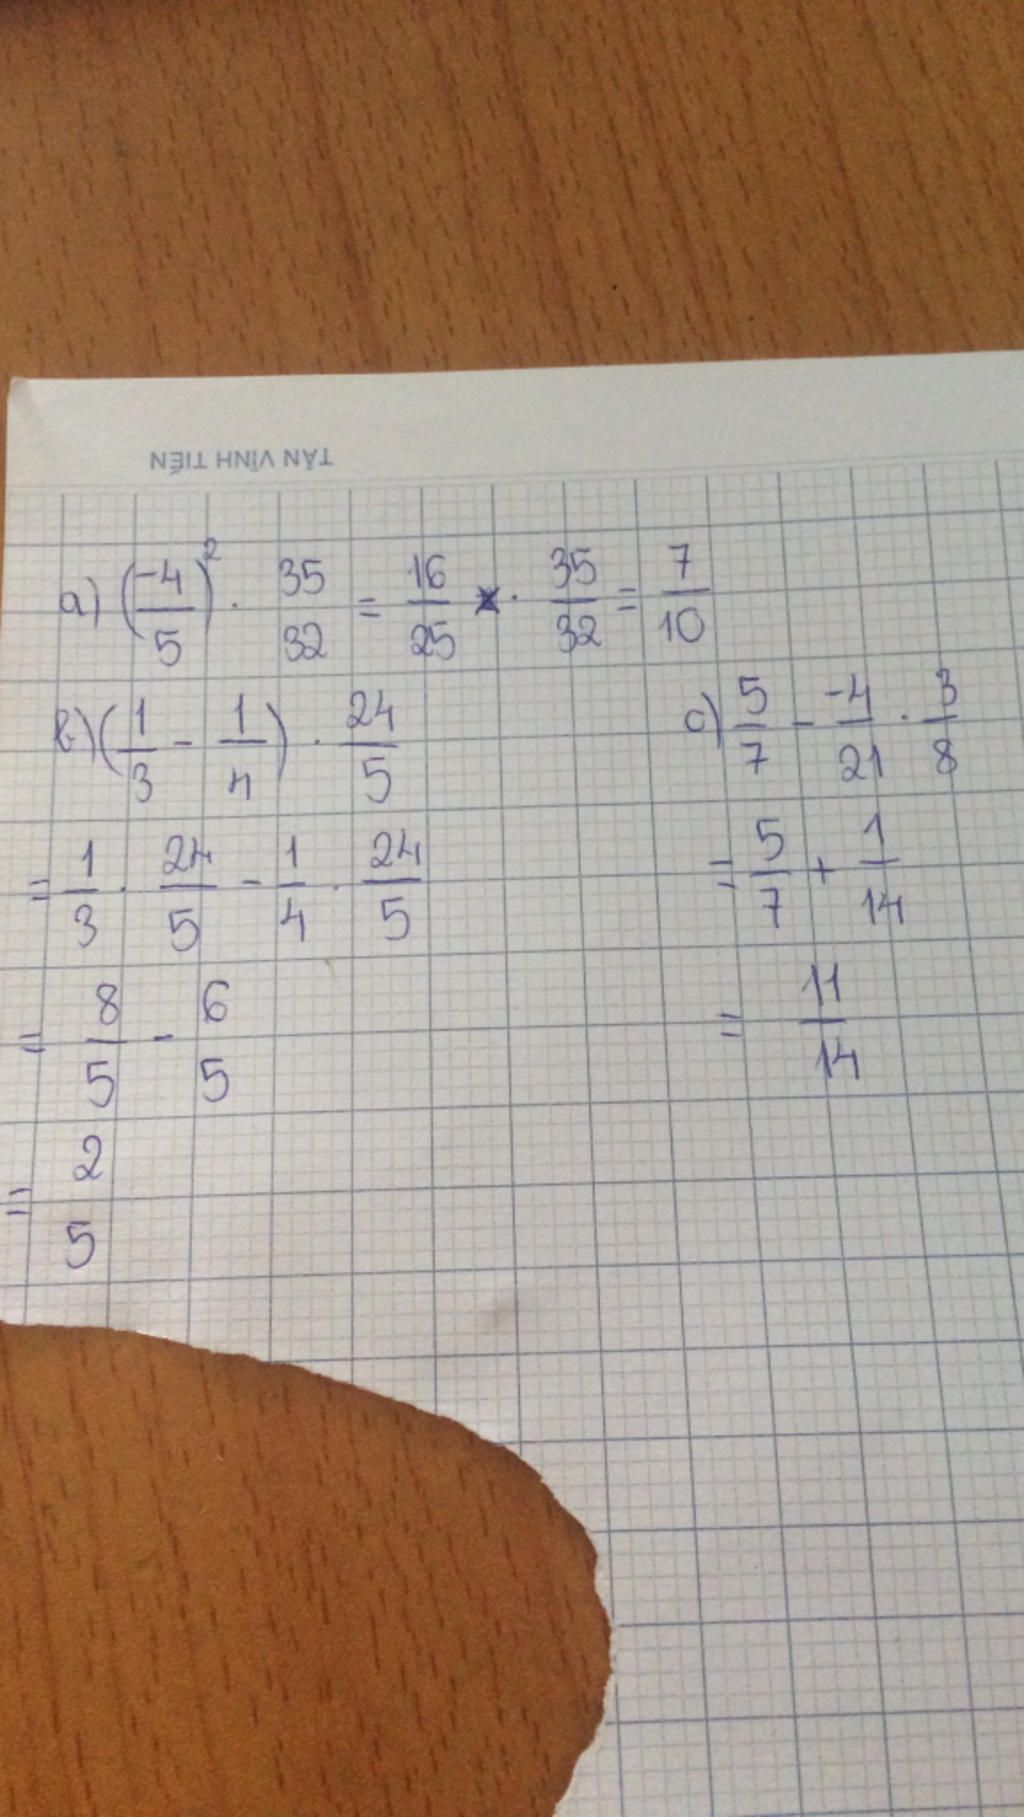 TÂN VĨNH TIẾN
a) (-4/5)² · 35/32 = 16/25 · 35/32 = 7/10
b) (1/3 - 1/4) · 24/5
= 1/3 · 24/5 - 1/4 · 24/5
= 8/5 - 6/5
= 2/5
c) 5/7 - -4/21 · 3/8
= 5/7 + 1/14
= 11/14